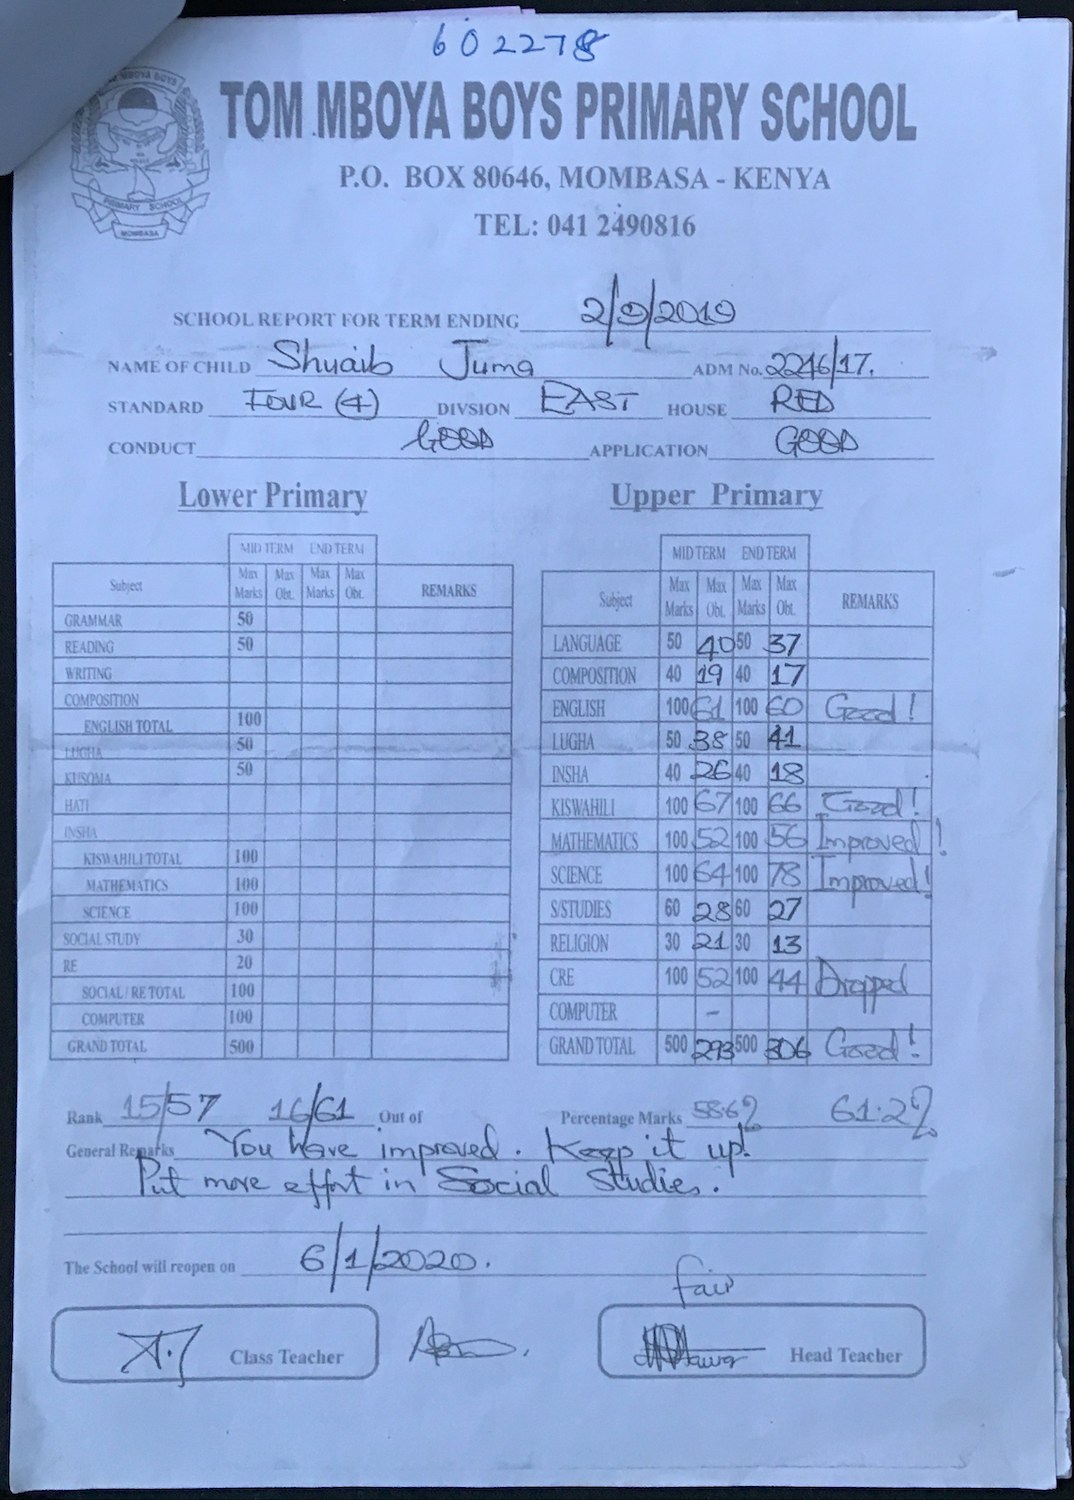 602278
TOM MBOYA BOYS PRIMARY SCHOOL
P.O. BOX 80646, MOMBASA - KENYA
TEL: 041 2490816
MBOYA BOYS
PRIMARY SCHOOL
MOMBASA
SCHOOL REPORT FOR TERM ENDING 2/9/2019
NAME OF CHILD Shuaib Juma ADM No. 2246/17.
STANDARD FOUR (4) DIVSION EAST HOUSE RED
CONDUCT GOOD APPLICATION GOOD
Lower Primary
MID TERM END TERM
Subject Max Marks Max Obt. Max Marks Max Obt. REMARKS
GRAMMAR 50
READING 50
WRITING
COMPOSITION
ENGLISH TOTAL 100
LUGHA 50
KUSOMA 50
HATI
INSHA
KISWAHILI TOTAL 100
MATHEMATICS 100
SCIENCE 100
SOCIAL STUDY 30
RE 20
SOCIAL / RE TOTAL 100
COMPUTER 100
GRAND TOTAL 500
Upper Primary
MID TERM END TERM
Subject Max Marks Max Obt. Max Marks Max Obt. REMARKS
LANGUAGE 50 40 50 37
COMPOSITION 40 19 40 17
ENGLISH 100 61 100 60 Good!
LUGHA 50 38 50 41
INSHA 40 26 40 18
KISWAHILI 100 67 100 66 Good!
MATHEMATICS 100 52 100 56 Improved!
SCIENCE 100 64 100 78 Improved!
S/STUDIES 60 28 60 27
RELIGION 30 21 30 13
CRE 100 52 100 44 Dropped
COMPUTER -
GRAND TOTAL 500 293 500 306 Good!
Rank 15/57 16/61 Out of Percentage Marks 58.6% 61.2%
General Remarks You have improved. Keep it up!
Put more effort in Social Studies.
The School will reopen on 6/1/2020.
fair
Class Teacher Head Teacher